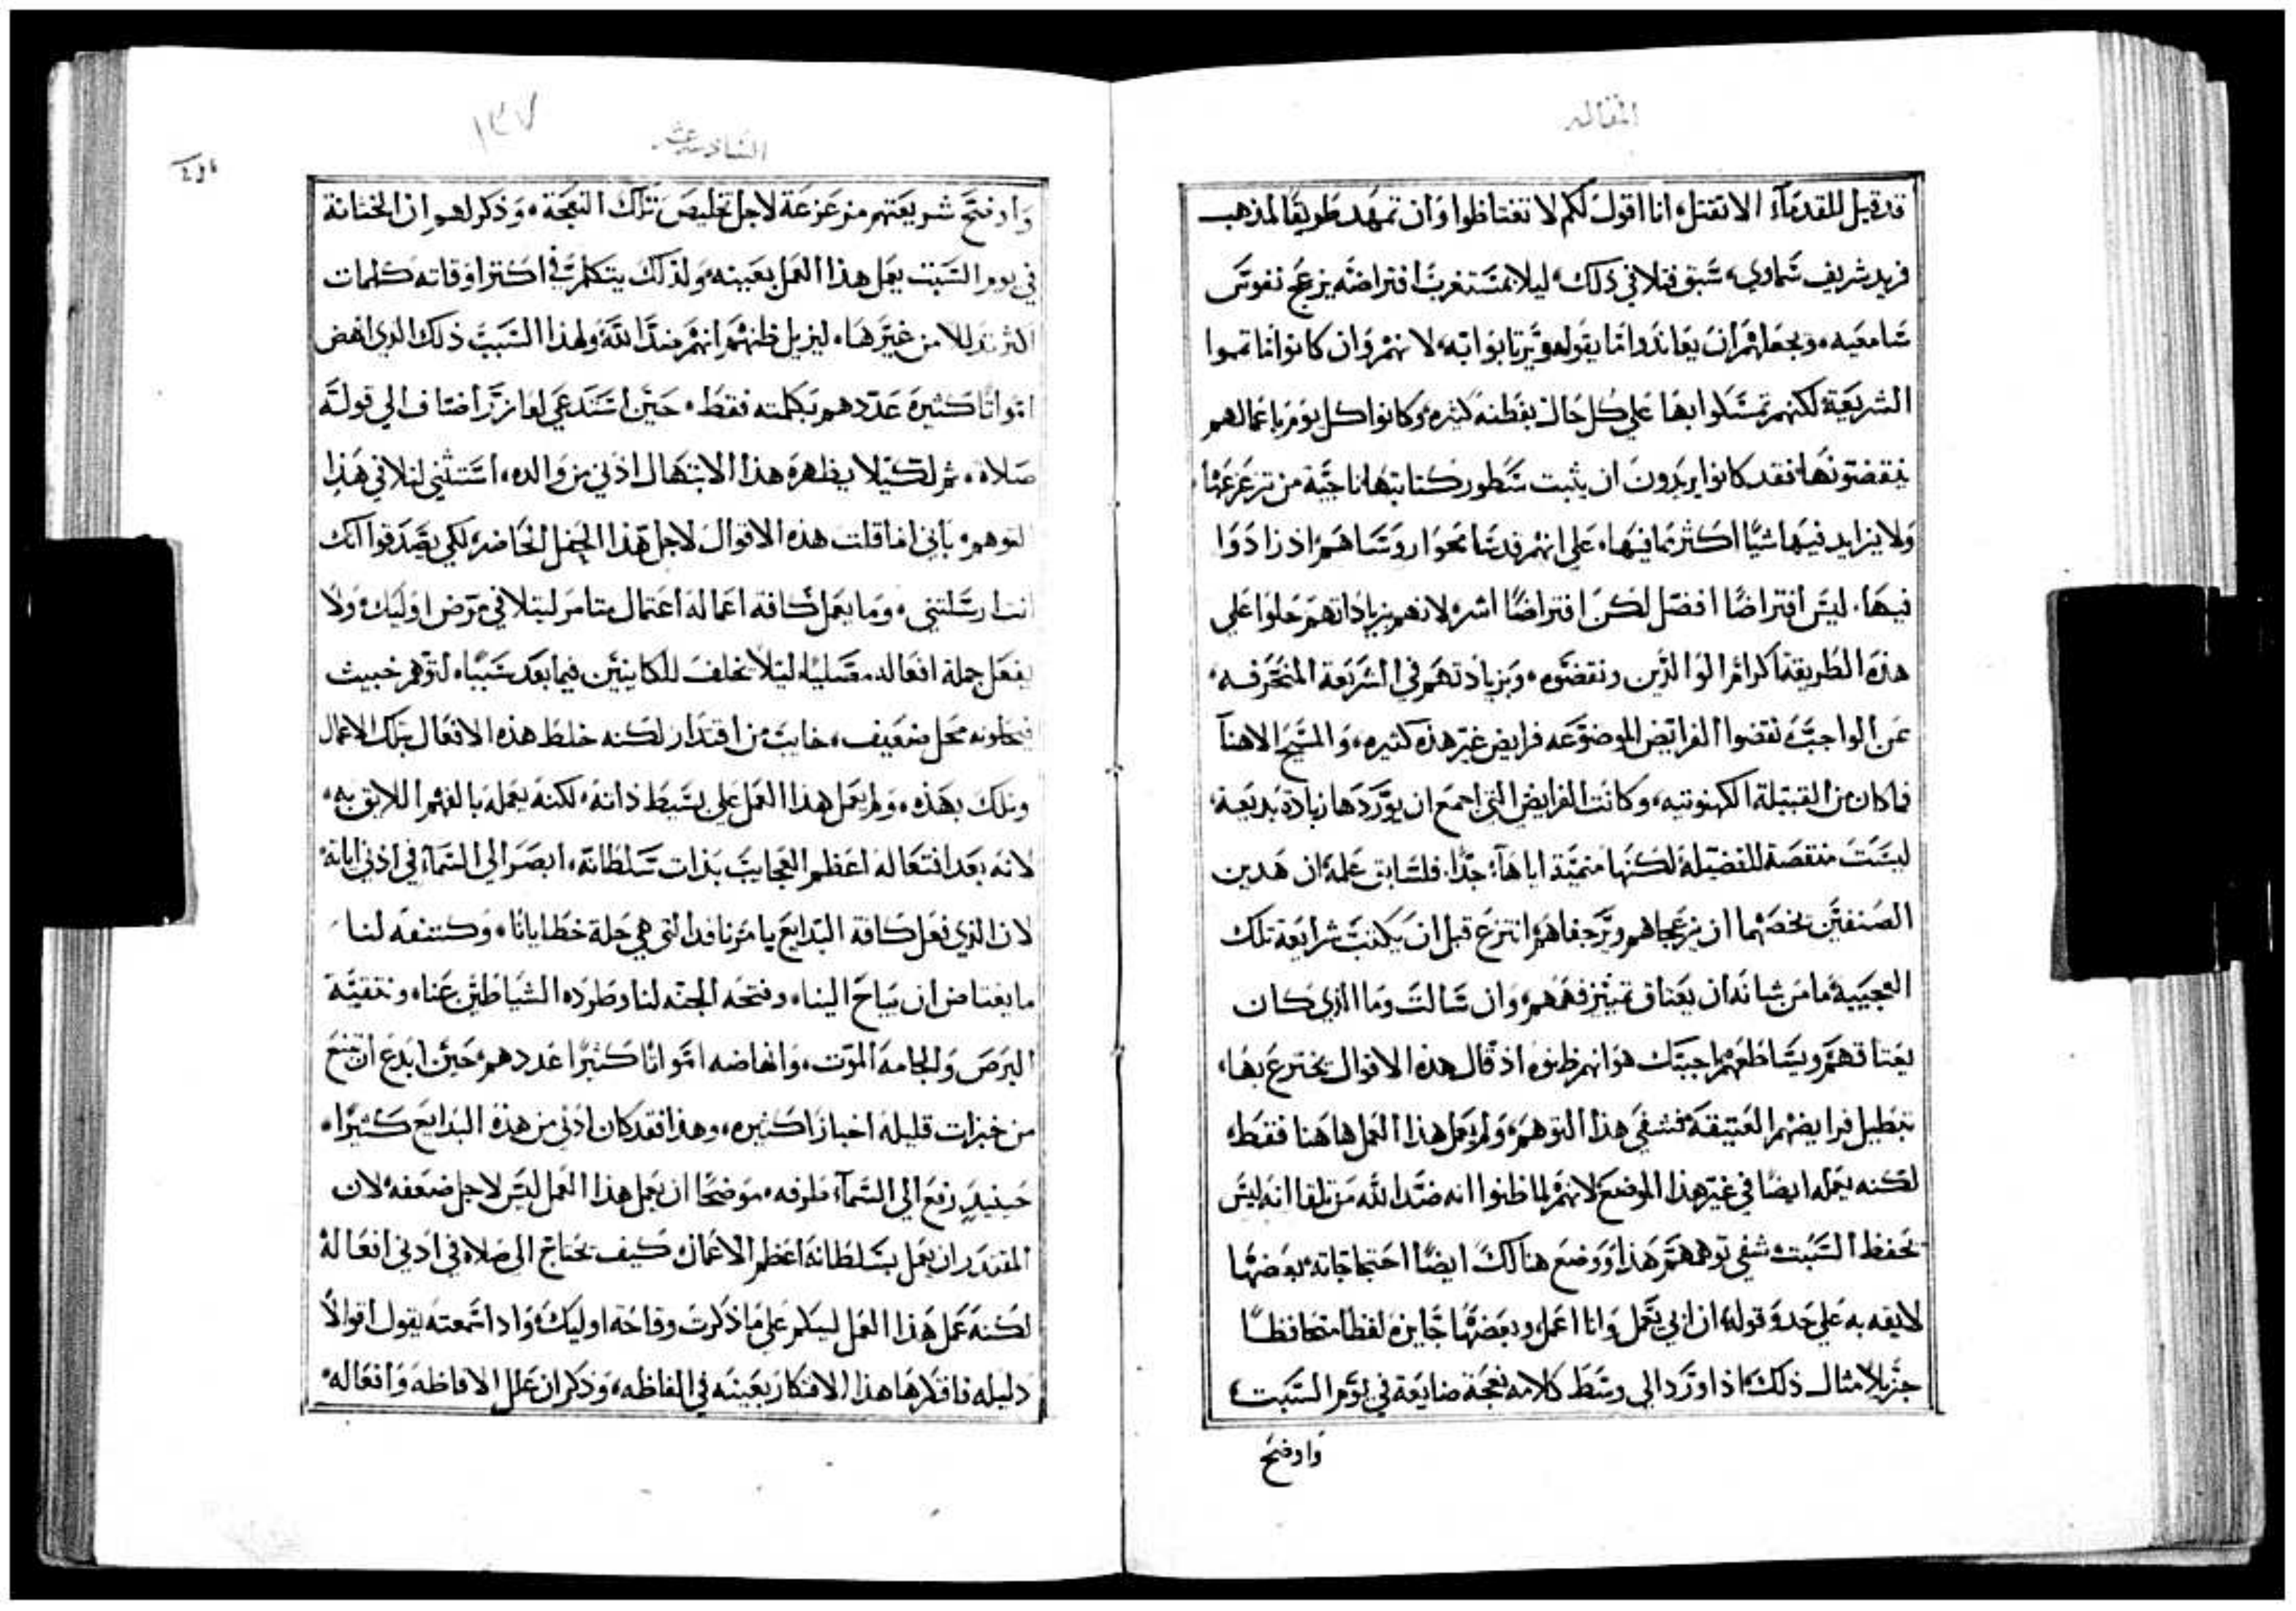 المقاله
قد قيل للقدمآء الا تقتل، انا اقول لكم لا تغتاظوا وان تمهد طريقا لمذهب
فريد شريف سماوي، سبق فتلافي ذلك، ليلا يستغرب افتراضه يزعج نفوس
سامعيه، ويجعلهم ان يعاندوا ما يقوله ويرتابوا به، لانهم وان كانوا ما تمموا
الشريعة لكنهم تمسكوا بها على كل حال بفطنه كثيره، وكانوا كل يوم باعمالهم
ينقضونها فقد كانوا يريدون ان يثبت سطور كتابتها ناجية من تزعزعها
ولا يزايد فيها شيًا اكثر مما فيها، على انهم قد سامحوا روساهم اذ زادوا
فيها، ليس افتراضًا افضل لكن افتراضًا اشر، لانهم بزياداتهم حلوا على
هذه الطريقة اكرام الوالدين ونقضوه، وبزيادتهم في الشريعة المنحرفه
عن الواجب نقضوا الفرايض الموضوعه فرايض غير هذه كثيره، والمسيح الاهنا
فما كان من القبيلة الكهنوتيه، وكانت الفرايض التي اجمع ان يوردها زيادة بديعة،
ليست منقصة للفضيلة لكنها متميّة اياها جدًا، فلسابق علمه ان هدين
الصنفين يخصهما ان يزعجاهم ويرجفاهم انتزع قبل ان يكتب شرايعة تلك
العجيبة ما من شانه ان يعتاق تمييز فهمهم، وان سالت وما الذي كان
يعتاقهم ويساطعهم اجبتك هو انهم ظنوه اذ قال هذه الاقوال يخترع بها
تبطيل فرايضهم العتيقة فشفي هذا التوهم، ولم يعمل هذا العمل هاهنا فقط،
لكنه يعمله ايضًا في غير هذا الموضع لانهم لما ظنوا انه ضدًا لله من تلقا انه ليس
يحفظ السبت، شفي توهمهم هذا ووضع هنالك ايضًا احتجاجاته، بعضها
لايقه به على حدو قوله، ان ابي يعمل وانا اعمل، وبعضها جايزة لفظا متحافظًا
جزيلا مثال ذلك، اذا اورد الي وسط كلامه نعجة ضايعة في يوم السبت،
واوضح
السادسه عشر
١٣٧
واوضح شريعتهم مزعزعة لاجل تخليص تلك النعجة، وذكر لهم ان الختانة
في يوم السبت يعمل هذا العمل بعينه، ولذلك يتكلم في اكثر اوقاته كلمات
اكثر تدللا من غيرها، ليزيل ظنهم انهم ضدًا لله، ولهذا السبب ذلك الدي انهض
امواتًا كثيرة عددهم بكلمته فقط، حين استدعي لعازر اضاف الي قولته
صلاة، ثم لكيلا يظهره هذا الابتهال ادني من والده، استثني لنلافي هذا
التوهم، باني انما قلت هذه الاقوال لاجل هذا الجفل الحاضر، لكي يصدقوا انك
انت ارسلتني، وما يعمل كافة اعماله اعتمال متامر ليتلافي مرض اوليك، ولا
يفعل جملة افعاله مصليًا، ليلا يخلف للكاينين فيما بعد سببًا، لتوهم خبيث
فيحلونه محل ضعيف، خايب من اقتدار لكنه خلط هذه الافعال بتلك الاعمال
وتلك بهذه، ولم يعمل هذا العمل على بسيط ذاته، لكنه يعمله بالفهم اللايق به،
لانه بعد افتعاله اعظم العجايب بذات سلطانه، ابصر الي السمآء في ادني اياته،
لان الذي فعل كافة البدايع يامرنا فدا التي هي حلة خطايانا، وكشفه لنا
ما يعتاض ان يباح الينا، وفتحه الجنه لنا وطرده الشياطين عنا، وتنقيّة
البرص والجامه الموت، وانهاضه امواتًا كثيرًا عددهم، حين ابدع ان يخترع
من خبزات قليلة اخبازًا كثيره، وهذا فقد كان ادني من هذه البدايع كثيرًا،
حينيدٍ رفع الي السمآء طرفه، موضحًا ان يعمل هذا العمل ليس لاجل ضعفه، لان
المقتدر ان يعمل بسلطانة اعظم الاعمال كيف يحتاج الي صلاه في ادني افعاله
لكنه عمل هذا العمل ليبكم على ما ذكرت وقاحة اوليك، وادا سمعته يقول اقوالًا
دليله فاقلرها هذا الافتكار بعينه في الفاظه، وذكر ان علل الافاظه وافعاله